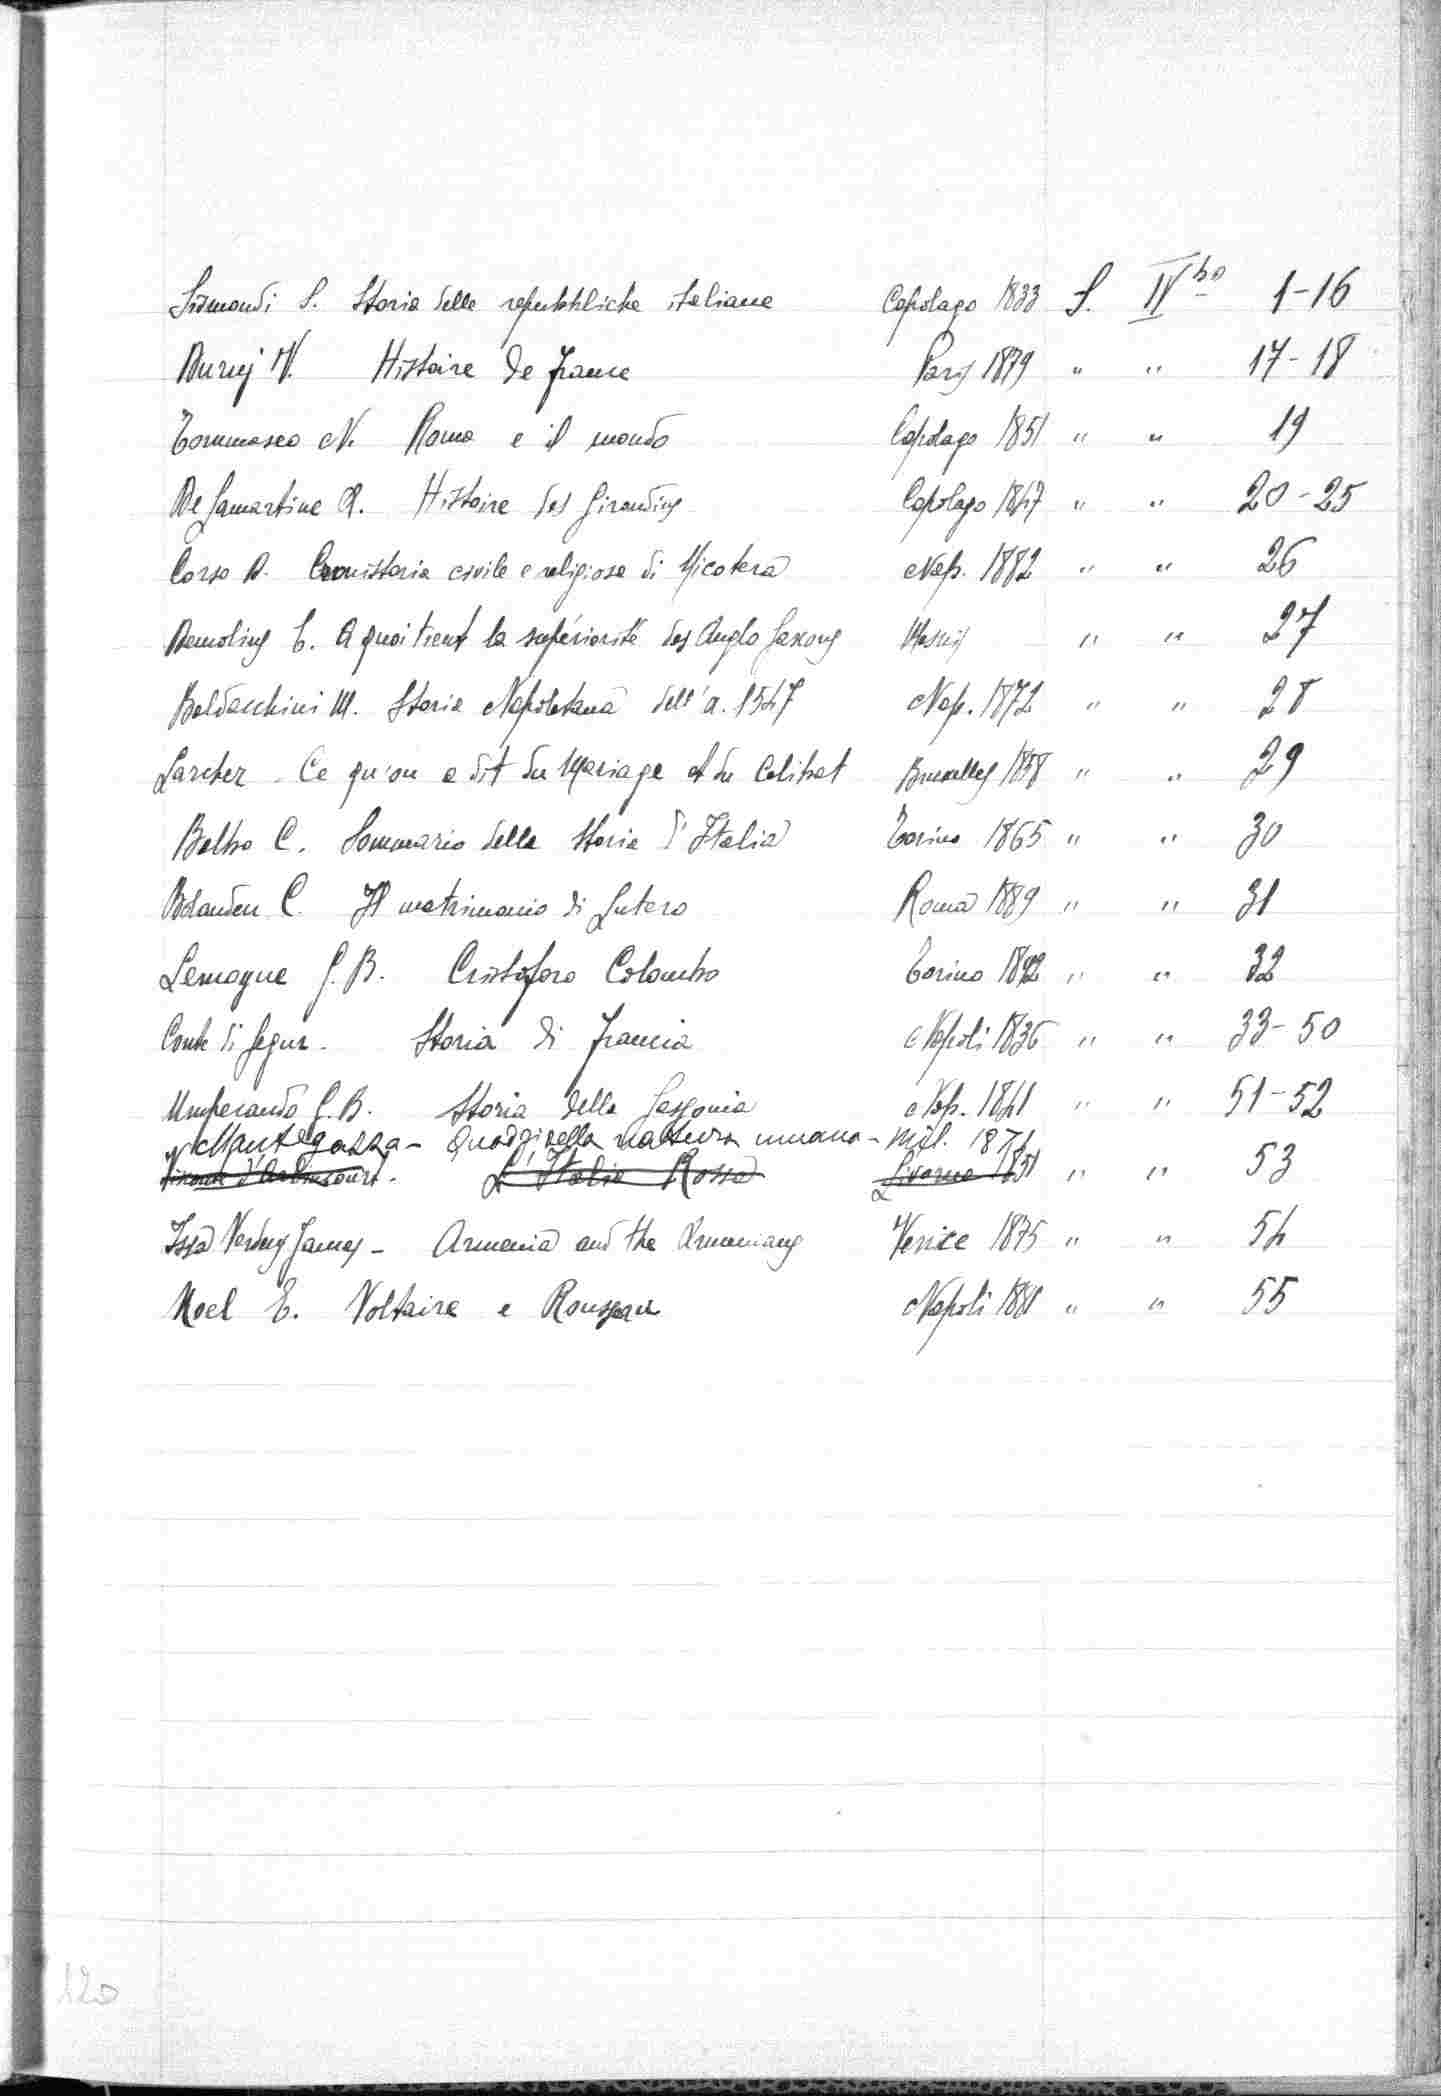 Sismondi S. Storia delle repubbliche italiane Capolago 1833 S. IV bo 1-16
Duruy V. Histoire de France Paris 1879 " " 17-18
Tommaseo N. Roma e il mondo Capolago 1851 " " 19
De Lamartine A. Histoire des Girondins Capolago 1847 " " 20-25
Corso D. Cronistoria civile e religiosa di Nicotera Nap. 1882 " " 26
Demolins E. A quoi tient la supériorité des Anglo Saxons " " 27
Baldacchini M. Storia Napoletana dell'a. 1547 Nap. 1872 " " 28
Larcher - Ce qu'on a dit du Mariage et du Celibat Bruxelles 1858 " " 29
Balbo C. Sommario della storia d'Italia Torino 1865 " " 30
Bolanden C. Il matrimonio di Lutero Roma 1889 " " 31
Lemoyne G. B. Cristoforo Colombo Torino 1892 " " 32
Conte di Segur. Storia di Francia Napoli 1836 " " 33-50
G. B. Storia della Nap. 1841 " " 51-52
Mantegazza - Quadri della natura umana - Mil. 1871
Visconte d'Arlincourt. L'Italia Rossa Livorno 1851 " " 53
Issa Verdens James - Armenia and the Armenians Venice 1875 " " 54
Noel E. Voltaire e Rousseau Napoli 1881 " " 55
120